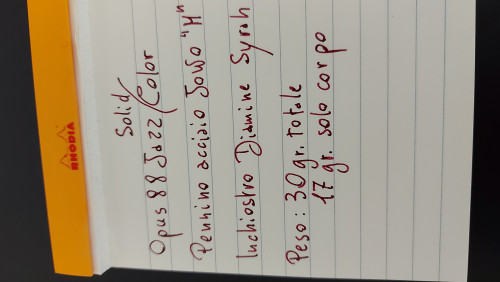 RHODIA
Solid
Opus 88 Jazz/Color
Pennino acciaio Jowo "M"
Inchiostro Diamine Syrah
Peso: 30gr. totale
17 gr. solo corpo